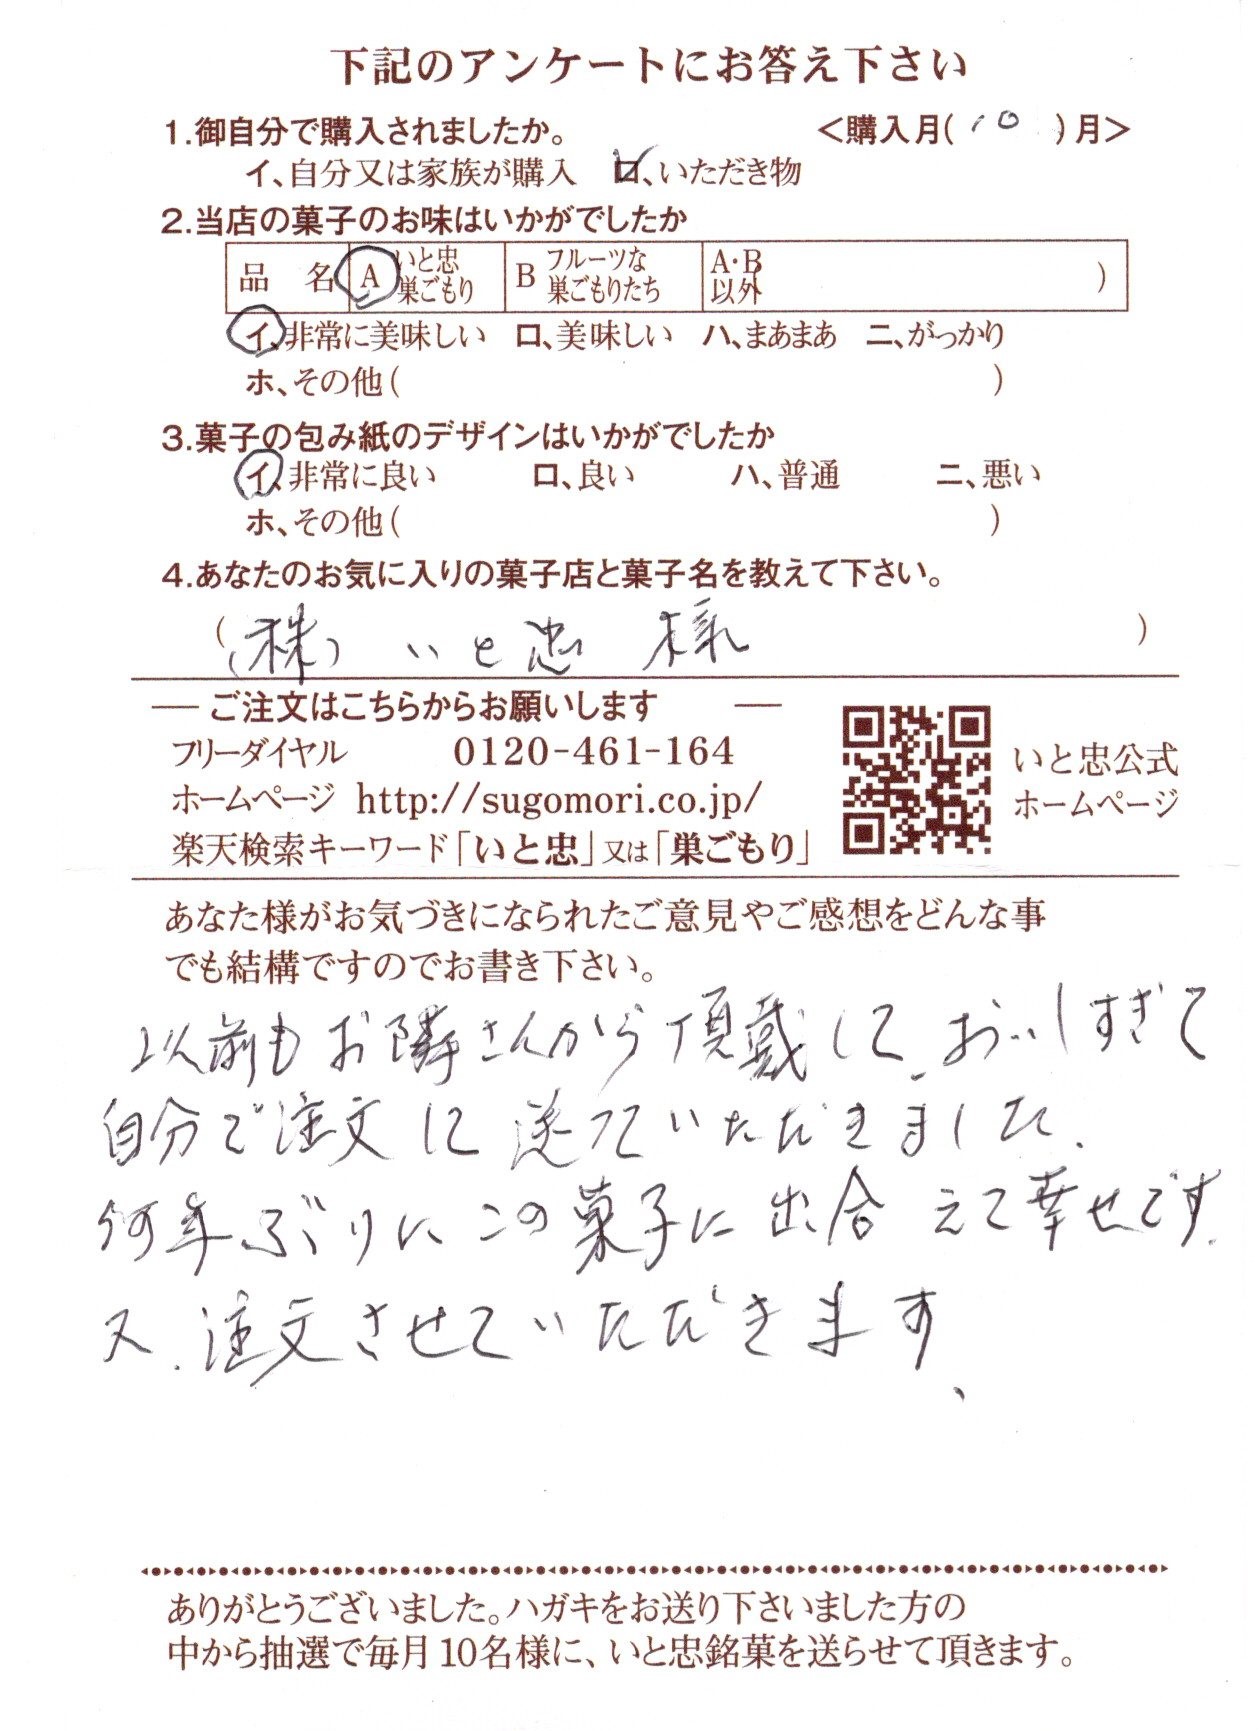 下記のアンケートにお答え下さい
1.御自分で購入されましたか。 <購入月( 10 )月>
イ、自分又は家族が購入 ロ、いただき物
2.当店の菓子のお味はいかがでしたか
品 名 A いと忠 巣ごもり B フルーツな 巣ごもりたち A・B 以外 )
イ、非常に美味しい ロ、美味しい ハ、まあまあ ニ、がっかり
ホ、その他( )
3.菓子の包み紙のデザインはいかがでしたか
イ、非常に良い ロ、良い ハ、普通 ニ、悪い
ホ、その他( )
4.あなたのお気に入りの菓子店と菓子名を教えて下さい。
( (株) いと忠 様 )
― ご注文はこちらからお願いします ―
フリーダイヤル 0120-461-164
ホームページ http://sugomori.co.jp/
楽天検索キーワード「いと忠」又は「巣ごもり」
いと忠公式
ホームページ
あなた様がお気づきになられたご意見やご感想をどんな事
でも結構ですのでお書き下さい。
以前もお隣さんから頂戴して、おいしすぎて
自分で注文に送っていただきました.
何年ぶりにこの菓子に出合えて幸せです.
又.注文させていただきます、
ありがとうございました。ハガキをお送り下さいました方の
中から抽選で毎月10名様に、いと忠銘菓を送らせて頂きます。